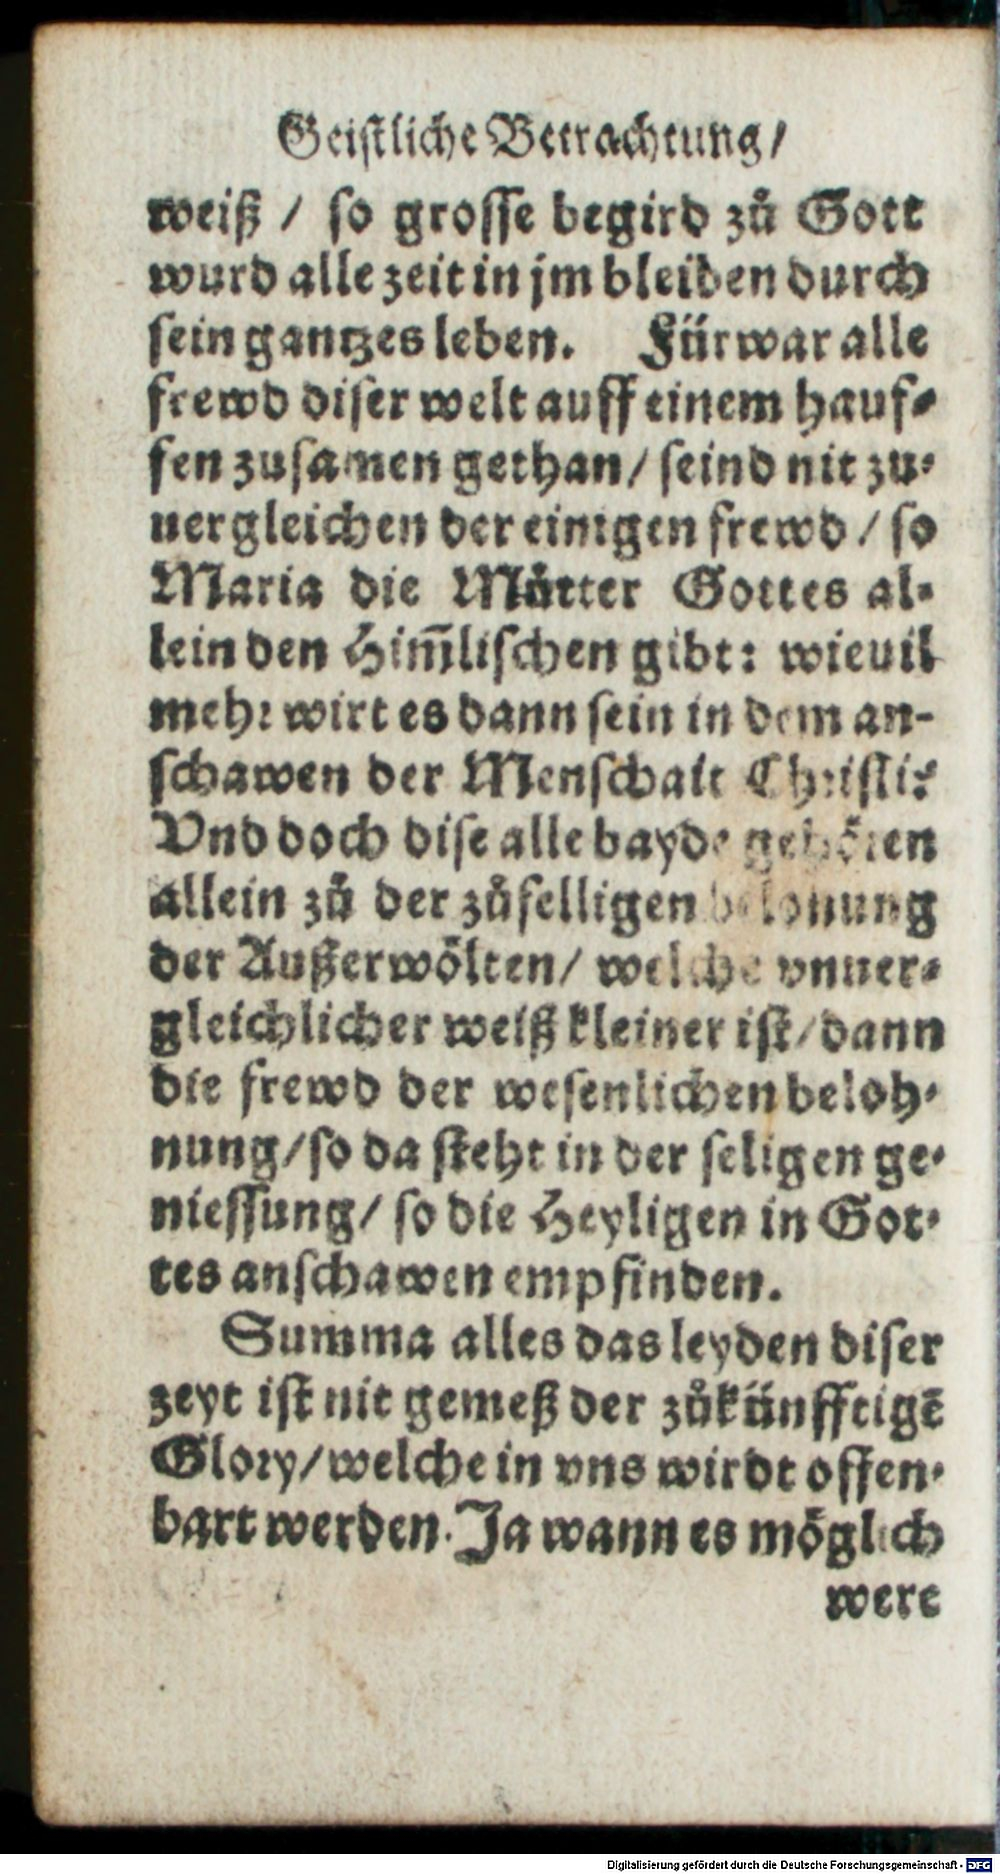 Geistliche Betrachtung/
weiß / so grosse begird zů Gott
wurd alle zeit in jm bleiben durch
sein gantzes leben. Fürwar alle
frewd diser welt auff einem hauf-
fen zusamen gethan/ seind nit zu-
uergleichen der einigen frewd / so
Maria die Můtter Gottes al-
lein den Him̃lischen gibt: wieuil
mehr wirt es dann sein in dem an-
schawen der Menschait Christi?
Vnd doch dise alle bayde gehören
allein zů der zůfelligen belonung
der Außerwölten/ welche vnuer-
gleichlicher weiß kleiner ist/ dann
die frewd der wesenlichen beloh-
nung/ so da steht in der seligen ge-
niessung/ so die Heyligen in Got-
tes anschawen empfinden.
Summa alles das leyden diser
zeyt ist nit gemeß der zůkünfftigē
Glory/ welche in vns wirdt offen-
bart werden. Ja wann es möglich
were
Digitalisierung gefördert durch die Deutsche Forschungsgemeinschaft - DFG